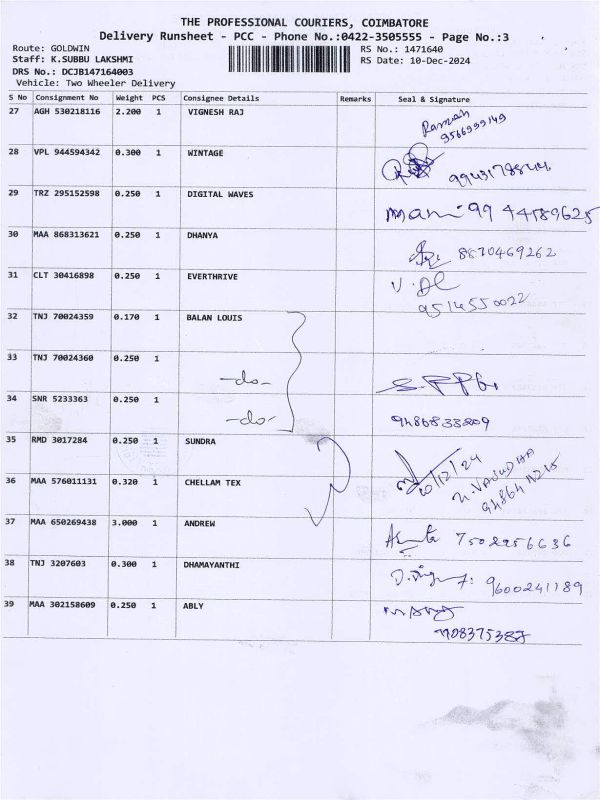 THE PROFESSIONAL COURIERS, COIMBATORE
Delivery Runsheet - PCC - Phone No.:0422-3505555 - Page No.:3
Route: GOLDWIN
RS No.: 1471640
Staff: K.SUBBU LAKSHMI
RS Date: 10-Dec-2024
DRS No.: DCJB147164003
Vehicle: Two Wheeler Delivery
S No Consignment No Weight PCS Consignee Details Remarks Seal & Signature
27 AGH 530218116 2.200 1 VIGNESH RAJ
Ramesh
9566999149
28 VPL 944594342 0.300 1 WINTAGE
29 TRZ 295152598 0.250 1 DIGITAL WAVES
mani 99 44189625
30 MAA 868313621 0.250 1 DHANYA
8870469262
31 CLT 30416898 0.250 1 EVERTHRIVE
9514550022
32 TNJ 70024359 0.170 1 BALAN LOUIS
33 TNJ 70024360 0.250 1
-do-
34 SNR 5233363 0.250 1
-do-
9486833809
35 RMD 3017284 0.250 1 SUNDRA
10/12/24
36 MAA 576011131 0.320 1 CHELLAM TEX
37 MAA 650269438 3.000 1 ANDREW
7502956636
38 TNJ 3207603 0.300 1 DHAMAYANTHI
9600241189
39 MAA 302158609 0.250 1 ABLY